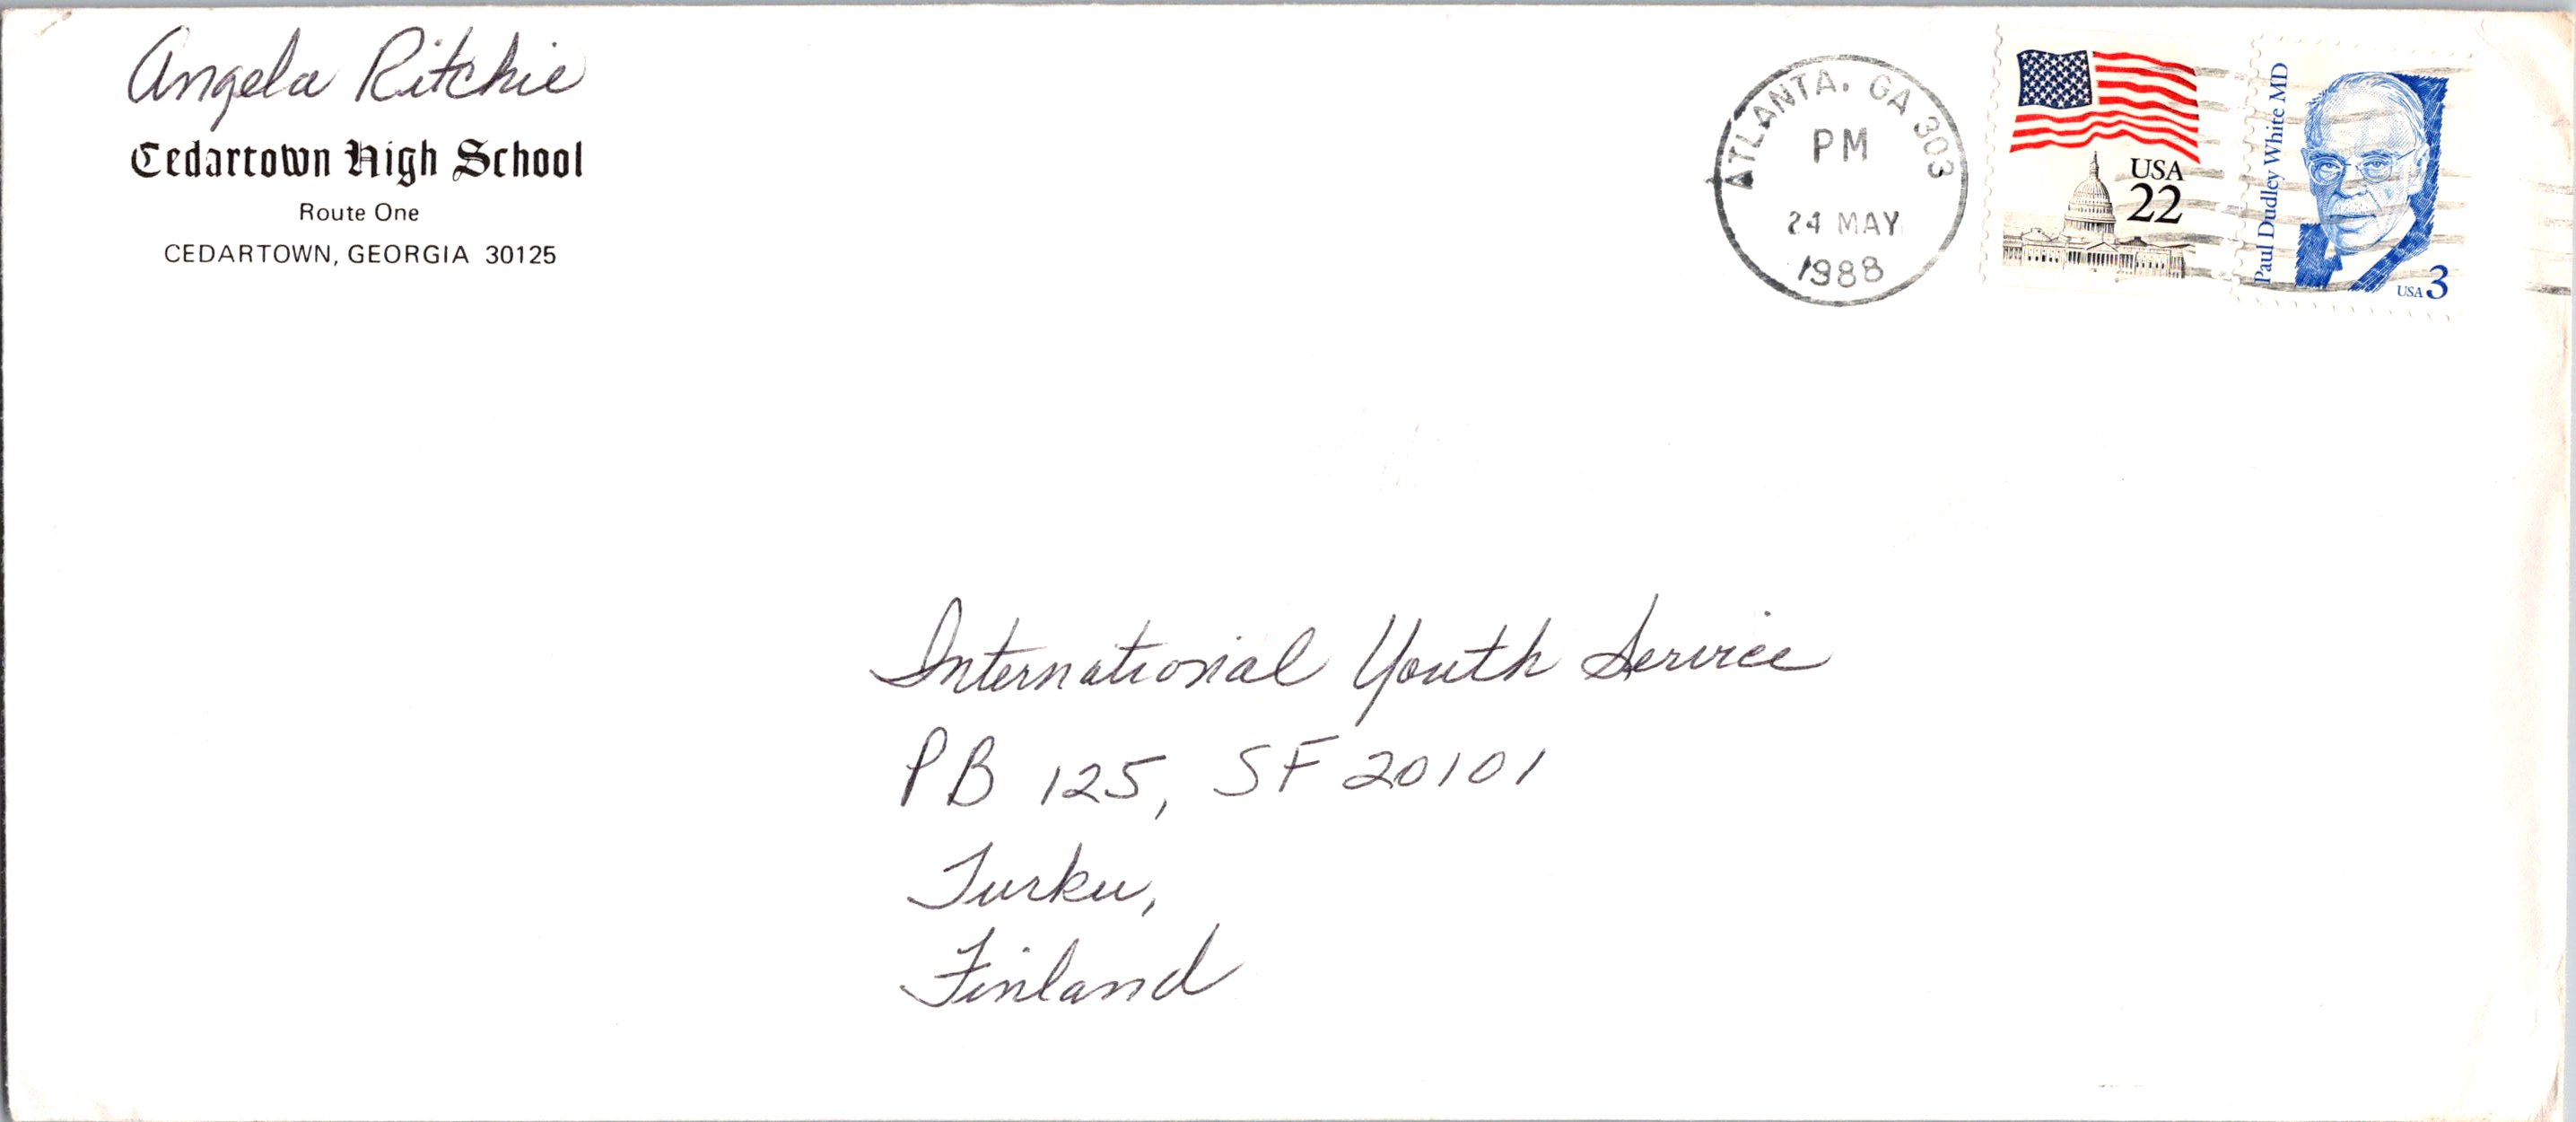 Angela Ritchie
Cedartown High School
Route One
CEDARTOWN, GEORGIA 30125
ATLANTA, GA 303
PM
24 MAY
1988
USA
22
Paul Dudley White MD
USA 3
International Youth Service
PB 125, SF 20101
Turku,
Finland